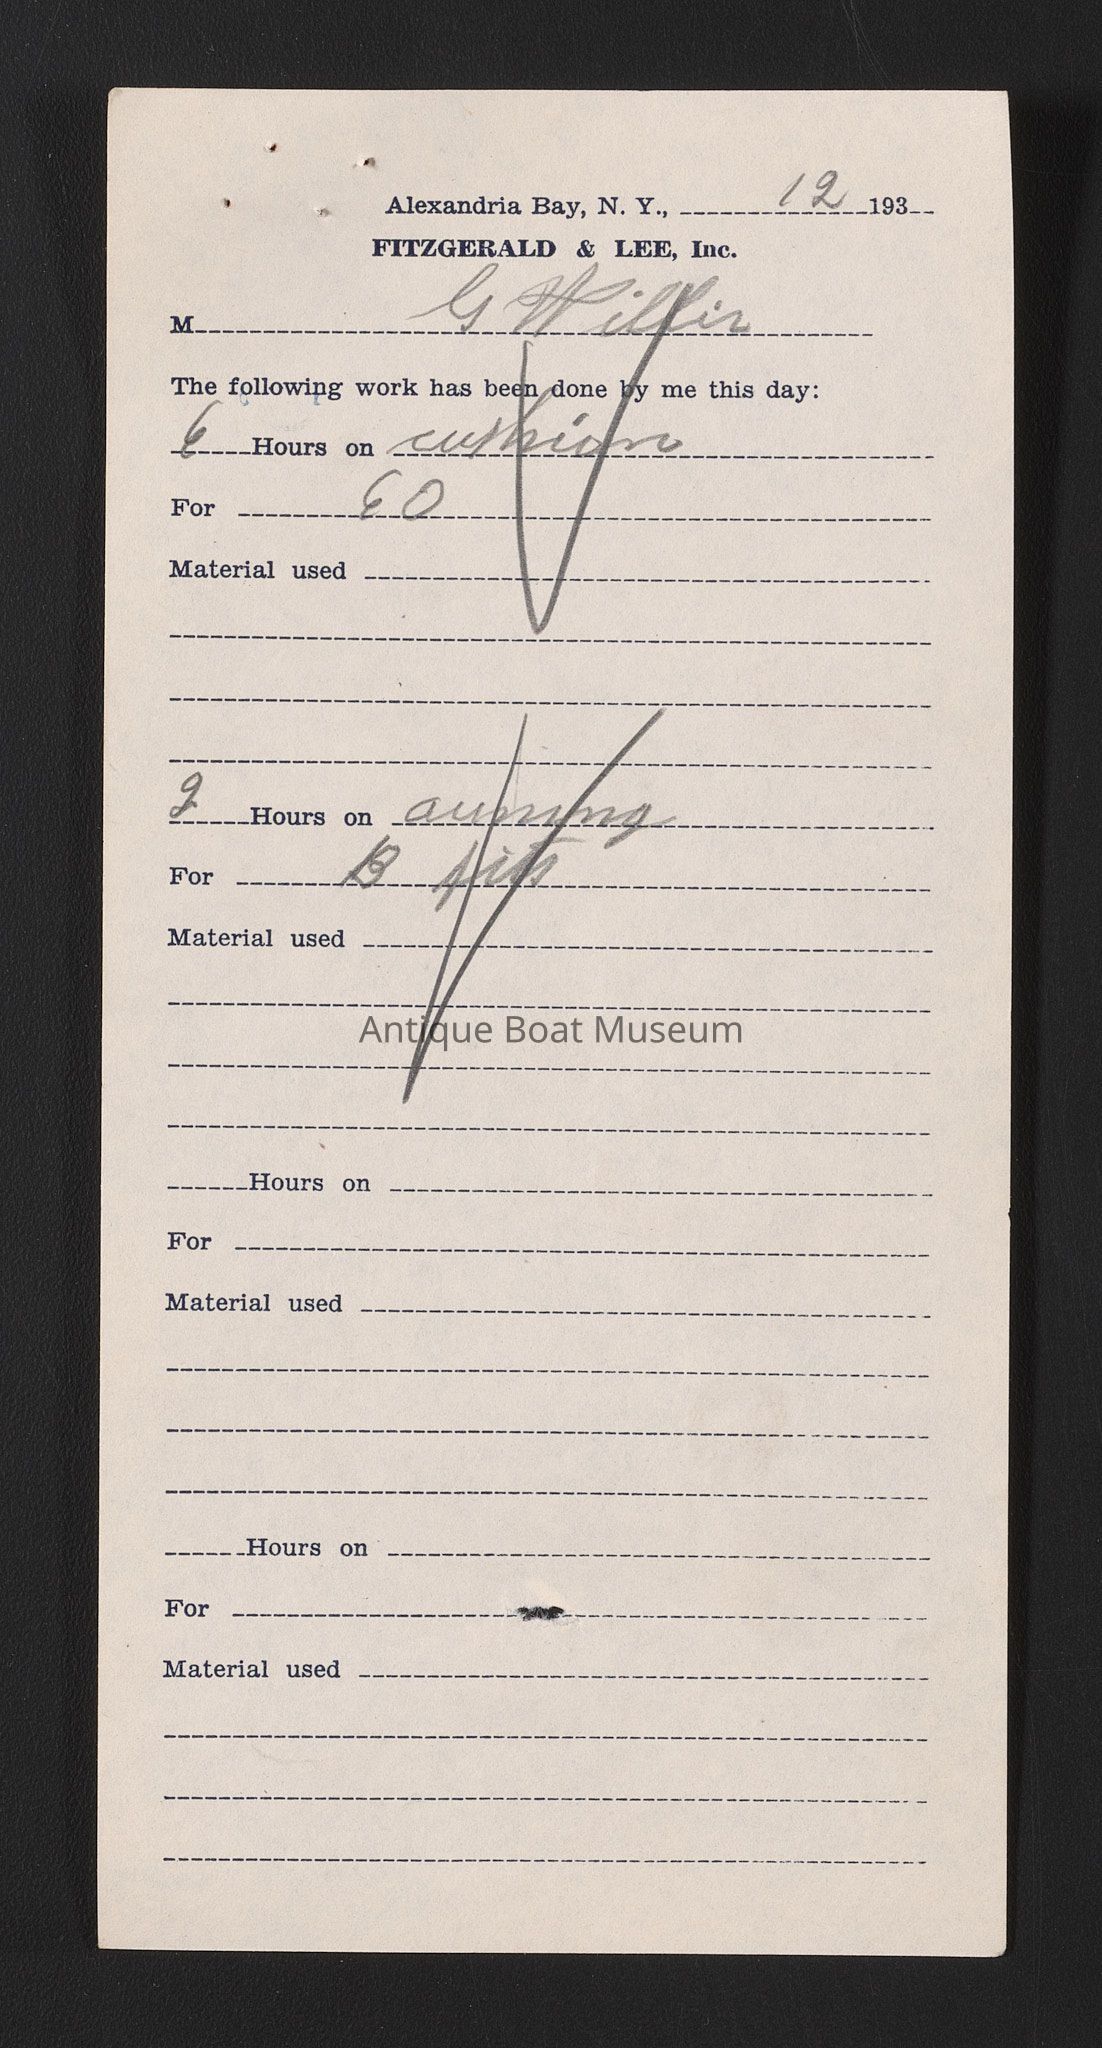 Alexandria Bay, N. Y., 12 193
FITZGERALD & LEE, Inc.
M G
The following work has been done by me this day:
6 Hours on cushions
For 60
Material used
2 Hours on awning
For B
Material used
Antique Boat Museum
Hours on
For
Material used
Hours on
For
Material used